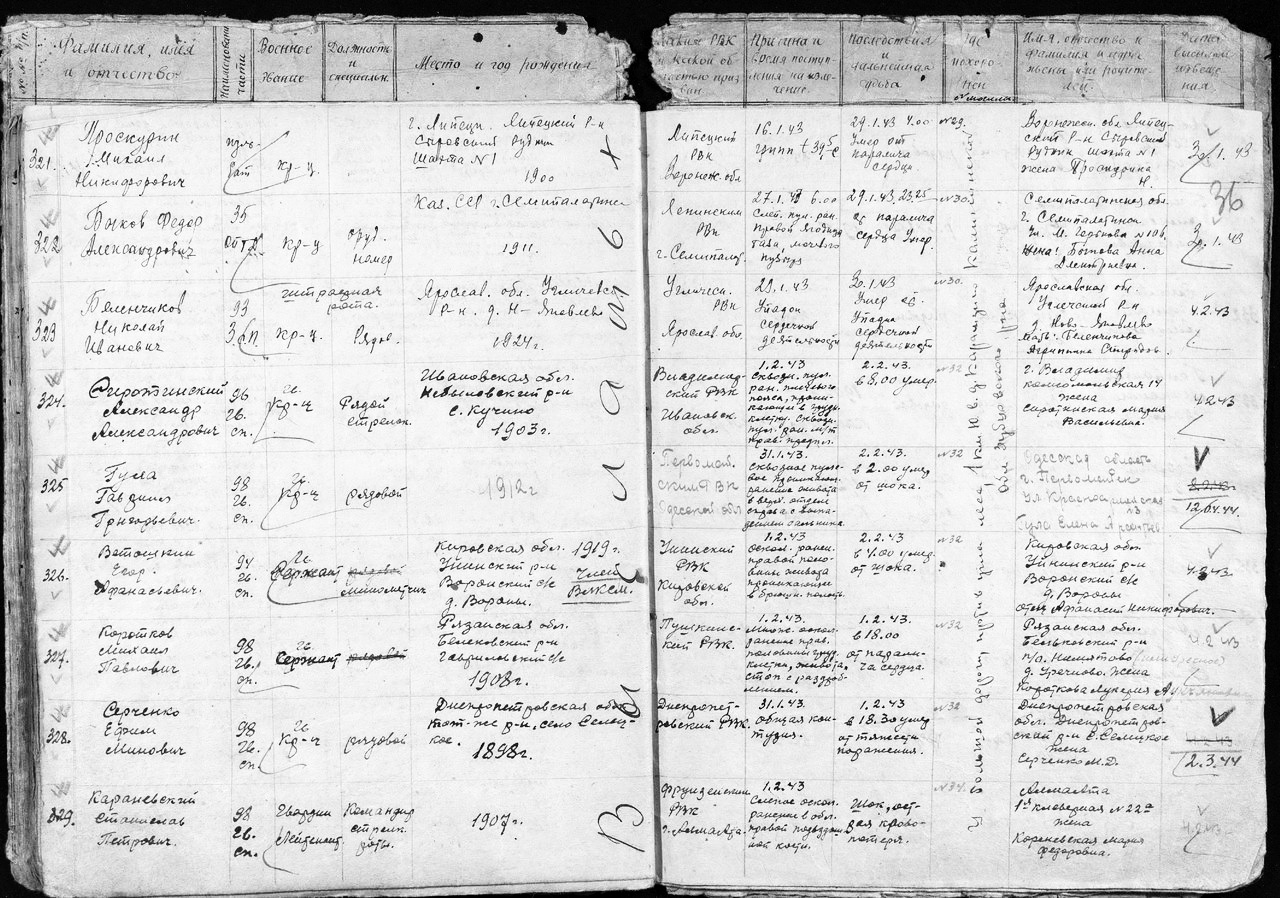 №№ п/п.
Фамилия, имя
и отчество
Наименован.
части
Военное
звание
Должность
и
специальн.
Место и год рождения
Каким РВК
Причина и
время поступ-
ления на изле-
чение.
Последствия
и
дальнейшая
судьба
Где
похоро-
нен
Имя, отчество и
фамилия и адрес
Дата
высылки
извеще-
ния.
321.
Проскурин
Михаил
Никифорович
кр-ц.
г. Липецк. Липецкий р-н
Сырский рудник
Шахта №1
1900
Липецкий
РВК
Воронеж. обл
16.1.43
грипп t 39,5°
29.1.43 4.00
Умер от
паралича
сердца
№29.
Воронежск. обл. Липец-
ский р-н Сырский
Рудник шахта №1
жена Проскурина
Н.
.1.43
36
322
Быков Федор
Александрович
35
кр-ц
оруд.
номер
Каз. ССР г. Семипалатинск
1911.
Ленинским
РВК
г. Семипалат.
27.1.43 6.00
Слеп. пул. ран.
правой ягодицы
таза, мочевого
пузыря
29.1.43. 23.25
от паралича
сердца умер.
№30.
Семипалатинская обл.
г. Семипалатинск
ул. М. Горького №106
жена: Быкова Анна
Дмитриевна.
.1.43
323
Беленчиков
Николай
Иванович
93
кр-ц.
штрафная
рота.
Рядов.
Ярослав. обл. Угличск.
р-н. д. Н-Яковлево
1924г.
Угличск.
РВК
Ярослав. обл.
29.1.43
Упадок
сердечной
деятельности
30.1.43
Умер от
Упадка
сердечной
деятельности
№30.
Ярославская обл.
Угличский р-н
д. Ново-Яковлево
Мать: Беленчикова
Агриппина Спирид.
4.2.43
324.
Сиротинский
Александр
Александрович
96
гв.
сп.
гв.
кр-ц
Рядой
Стрелок.
Ивановская обл.
Небыловский р-н
с. Кучино
1903г.
Владимир-
ский РВК
Ивановск.
обл.
1.2.43
Сквозн. пул.
ран. плечевого
пояса, прони-
кающ. в грудн.
клетку. Сквозн.
пул. ран. м/т
прав. предпл.
2.2.43.
в 5.00 умер.
№32
г. Владимир
комсомольская 14
жена
Сиротинская Мария
Васильевна.
4.2.43
325
Гула
Гавриил
Григорьевич.
98
гв.
сп.
гв
кр-ц
рядовой
1912г
Первомай.
ским РВК
Одесской обл
31.1.43.
Сквозное пуле-
вое проникающ.
ранение живота
в верх. отделе
справа с выпа-
дением сальника.
2.2.43.
в 2.00 умер
от шока.
№32
Одесская область
г. Первомайск
ул Красноармейская
13
Гула Елена
12.04.44.
326.
Ветошкин
Егор
Афанасьевич.
94
гв.
сп.
гв
Сержант
рядовой
Минометчик
Кировская обл. 1919г.
Унинский р-н
Воронский с/с
д. Вороны.
Член
ВЛКСМ.
Унинский
РВК
Кировской
обл.
1.2.43
Оскол. ранен.
правой поло-
вины живота
проникающее
в брюшн. полость
2.2.43
в 4.00 умер.
от шока.
№32
Кировская обл
Унинский р-н
Воронский с/с
д. Вороны
отец Афанасий Никифорович.
4.2.43.
327.
Коротков
Михаил
Павлович
98
гв.
сп.
гв
Сержант
рядовой
Рязанская обл.
Бельковский р-н
Гавриловский с/с
1908г.
Пушкинс-
кий РВК
1.2.43.
Множ. оскол.
ранение прав.
половины груд.
клетки, живота,
стоп с раздроб-
лением.
1.2.43.
в 18.00
от парали-
ча сердца.
№32
Рязанская обл.
Бельковский р-н
п/о
жена
Короткова Лукерия
4.2.43
328.
Серченко
Ефим
Минович
98
гв.
сп.
гв
кр-ц
рядовой
Днепропетровская обл
тот-же р-н, село Селец-
кое.
1898г.
Днепропет-
ровский РВК.
31.1.43.
общая кон-
тузия.
1.2.43.
в 18.30 умер
от тяжести
поражения.
№32
Днепропетровская
обл. Днепропетров-
ский р-н с. Селецкое
жена
Серченко М.Д.
2.3.44
329.
Караневский
Станислав
Петрович.
98
гв.
сп.
Гвардии
Лейтенант
Командир
стрелк.
роты.
1907г.
Фрунзенским
РВК
г. Алма Ата.
1.2.43
Слепое оскол.
ранение в обл.
правой подвздош
ной кости.
Шок, ост-
рая крово-
потеря.
№34.
Алма Ата
1я клеверная №22а
жена
Кореневская Мария
Федоровна.
4.2.43